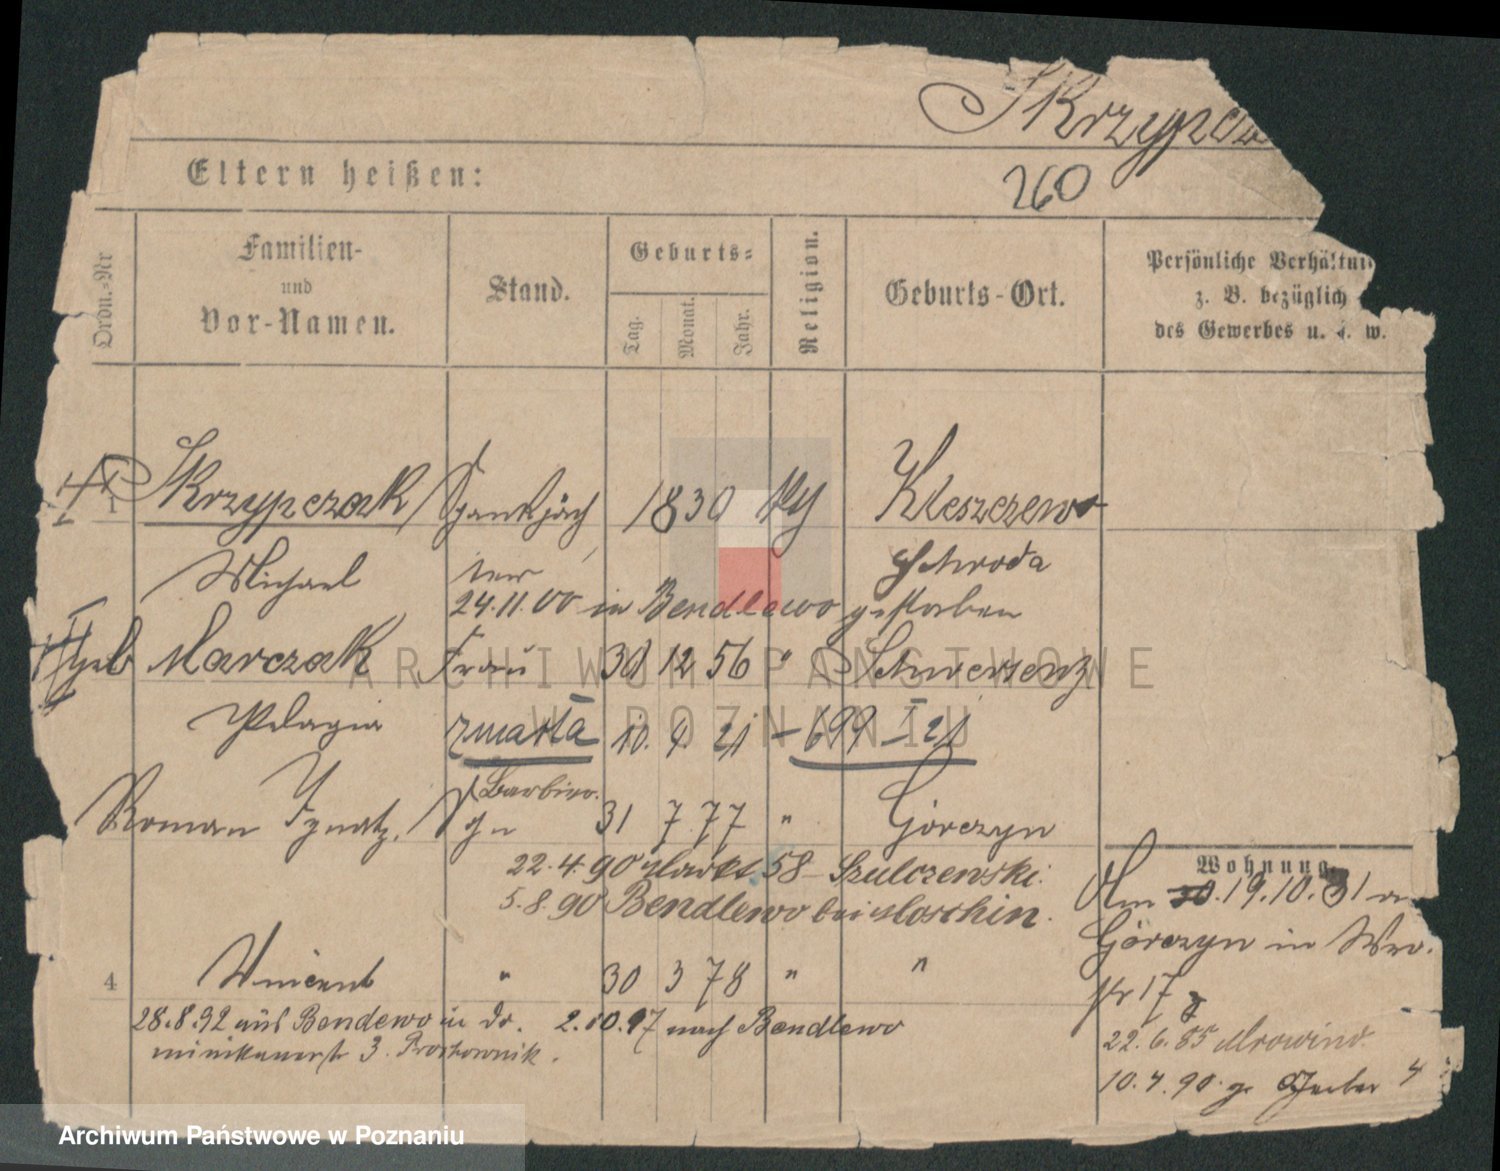 Skrzypcz
260
Eltern heißen:
Ordn.-Nr
Familien-
und
Vor-Namen.
Stand.
Geburts-
Tag.
Monat.
Jahr.
Religion.
Geburts-Ort.
Persönliche Verhältni
z. B. bezüglich
des Gewerbes u. s. w.
1 Skrzypczak 1830 Kleszczewo
Michael Schroda
24.11.00 in Bendlewo gestorben
geb Marczak Frau 30 12 56 " Schwersenz
Pelagia zmarła 10. 9. 21 – 699 I 21
Barbier.
Roman Ignatz, Sohn 31 7 77 " Górczyn
22.4.90 Markt 58 Szulczewski.
5.8.90 Bendlewo bei Moschin.
4 Vincent " 30 3 78 " "
28.8.92 aus Bendewo in Do. 2.10.97 nach Bendlewo
minikanerstr 3.
Wohnung.
Am 19.10.81 in
Górczyn in
Nr 17
22.6.85 Mrowino
10.4.90 gr Gerber 4
ARCHIWUM PAŃSTWOWE
W POZNANIU
Archiwum Państwowe w Poznaniu